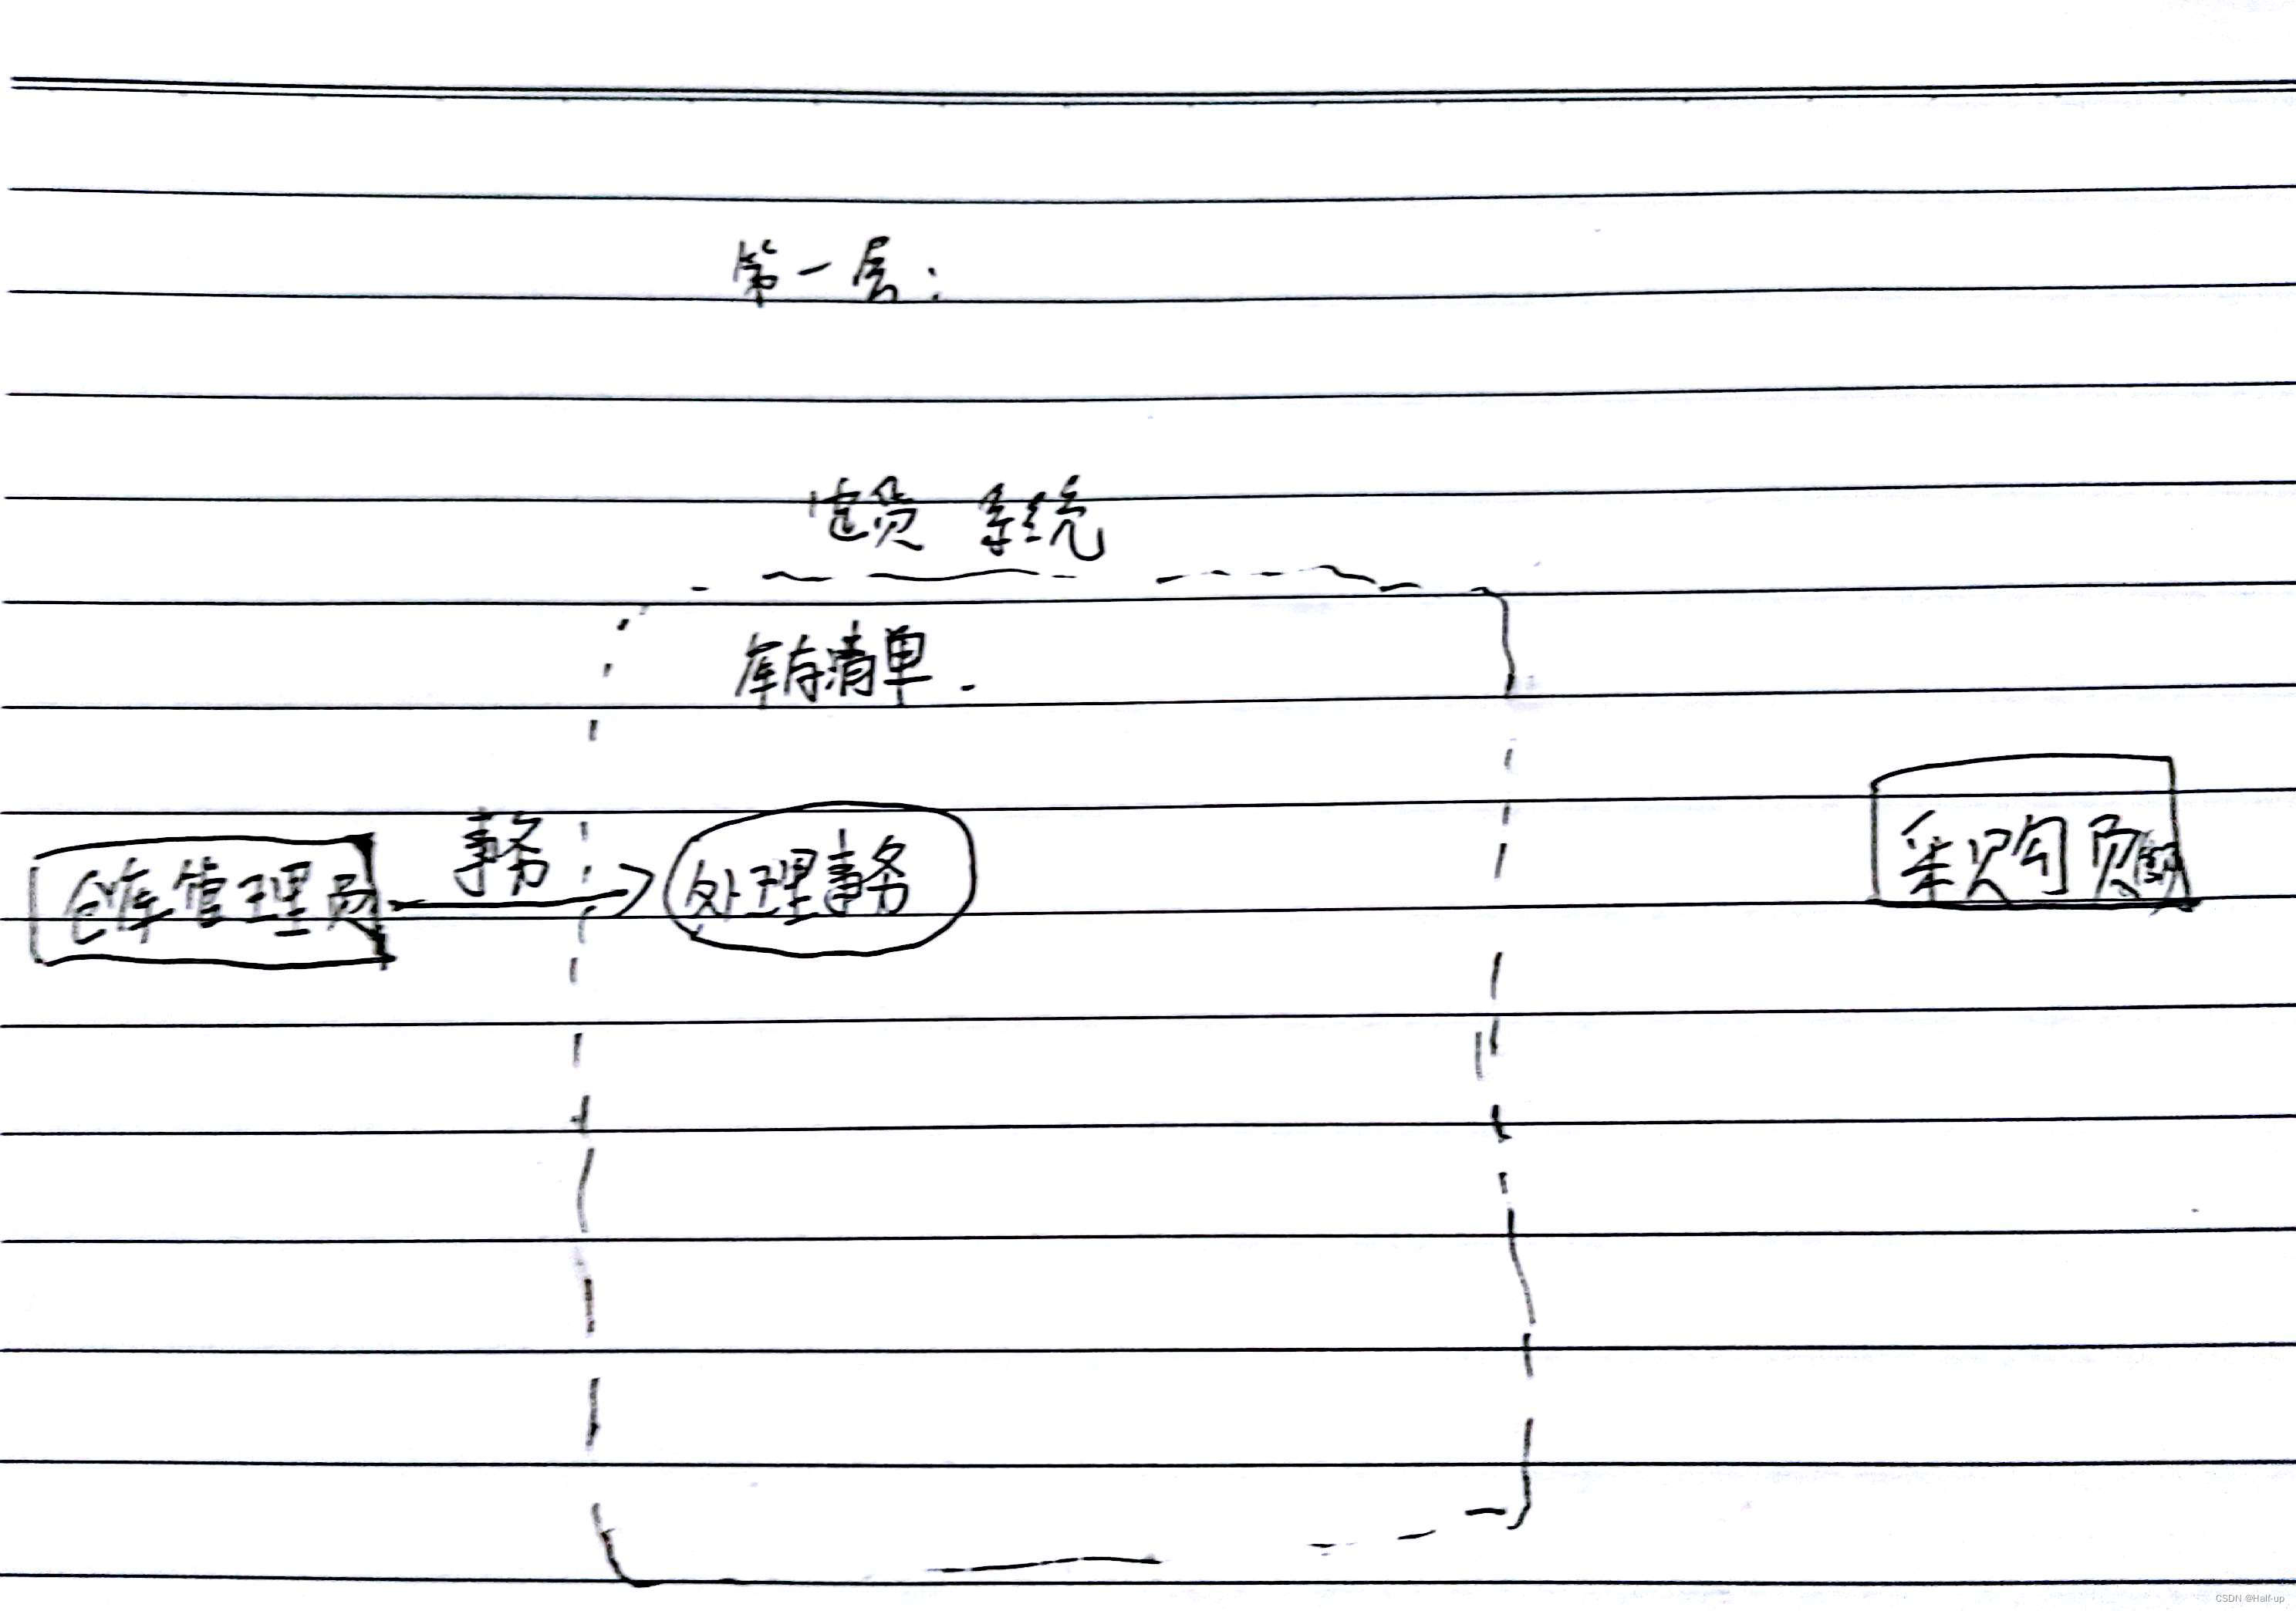 第一层:
定货 系统
库存清单.
事务
仓库管理员
处理事务
采购员
CSDN @Half-up